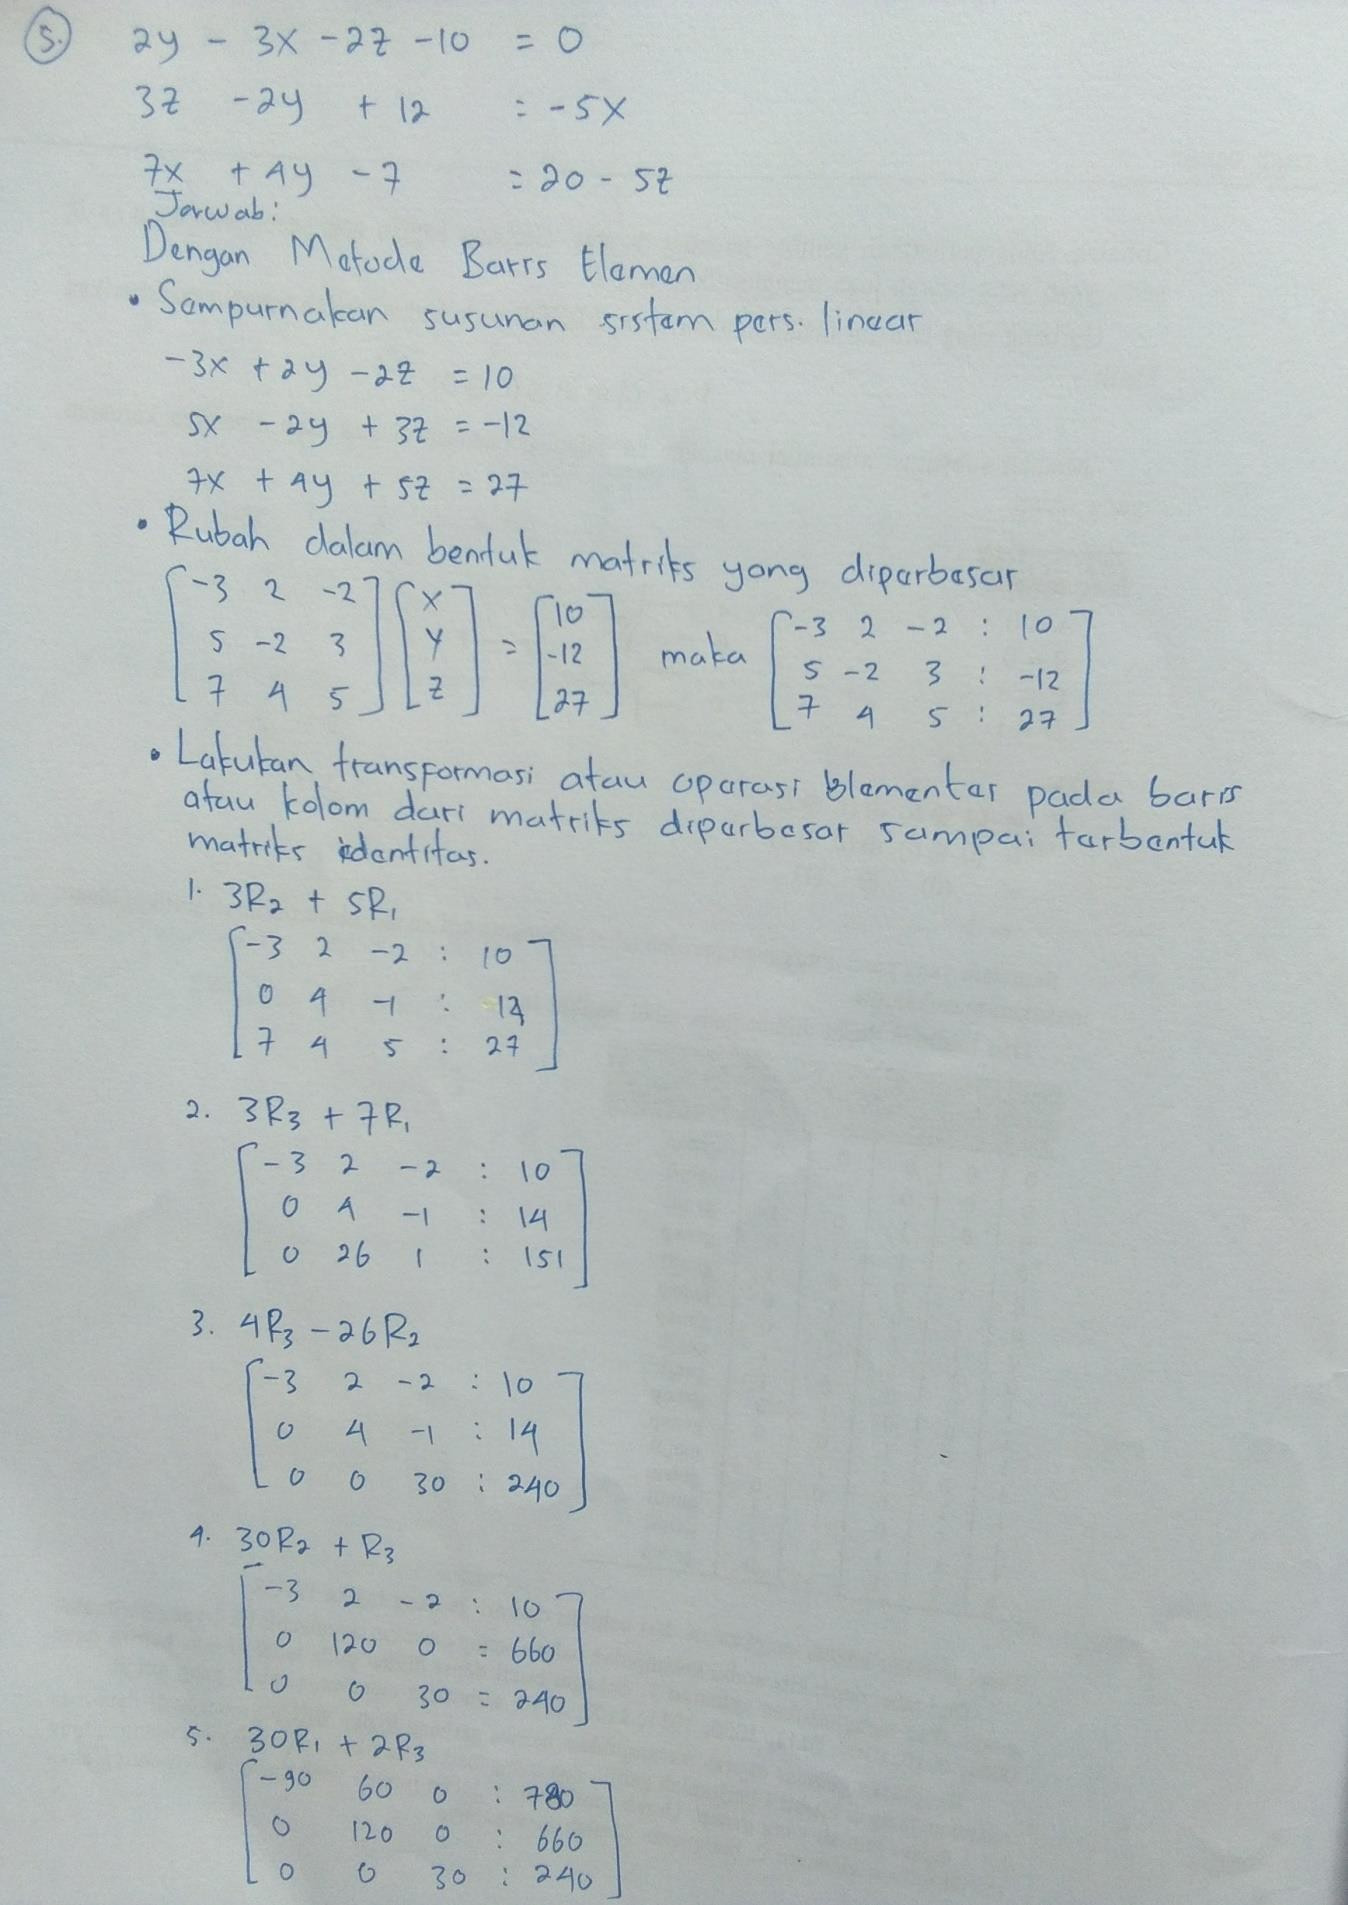 5. 2y - 3x - 2z - 10 = 0
3z - 2y + 12 = -5x
7x + 4y - 7 = 20 - 5z
Jawab:
Dengan Metode Baris Elemen
• Sempurnakan susunan sistem pers. linear
-3x + 2y - 2z = 10
5x - 2y + 3z = -12
7x + 4y + 5z = 27
• Rubah dalam bentuk matriks yang diperbesar
[-3 2 -2] [x] = [10] maka [-3 2 -2 : 10]
[5 -2 3] [y] [-12] [5 -2 3 : -12]
[7 4 5] [z] [27] [7 4 5 : 27]
• Lakukan transformasi atau operasi elementer pada baris
atau kolom dari matriks diperbesar sampai terbentuk
matriks identitas.
1. 3R2 + 5R1
[-3 2 -2 : 10]
[0 4 -1 : 14]
[7 4 5 : 27]
2. 3R3 + 7R1
[-3 2 -2 : 10]
[0 4 -1 : 14]
[0 26 1 : 151]
3. 4R3 - 26R2
[-3 2 -2 : 10]
[0 4 -1 : 14]
[0 0 30 : 240]
4. 30R2 + R3
[-3 2 -2 : 10]
[0 120 0 = 660]
[0 0 30 = 240]
5. 30R1 + 2R3
[-90 60 0 : 780]
[0 120 0 : 660]
[0 0 30 : 240]